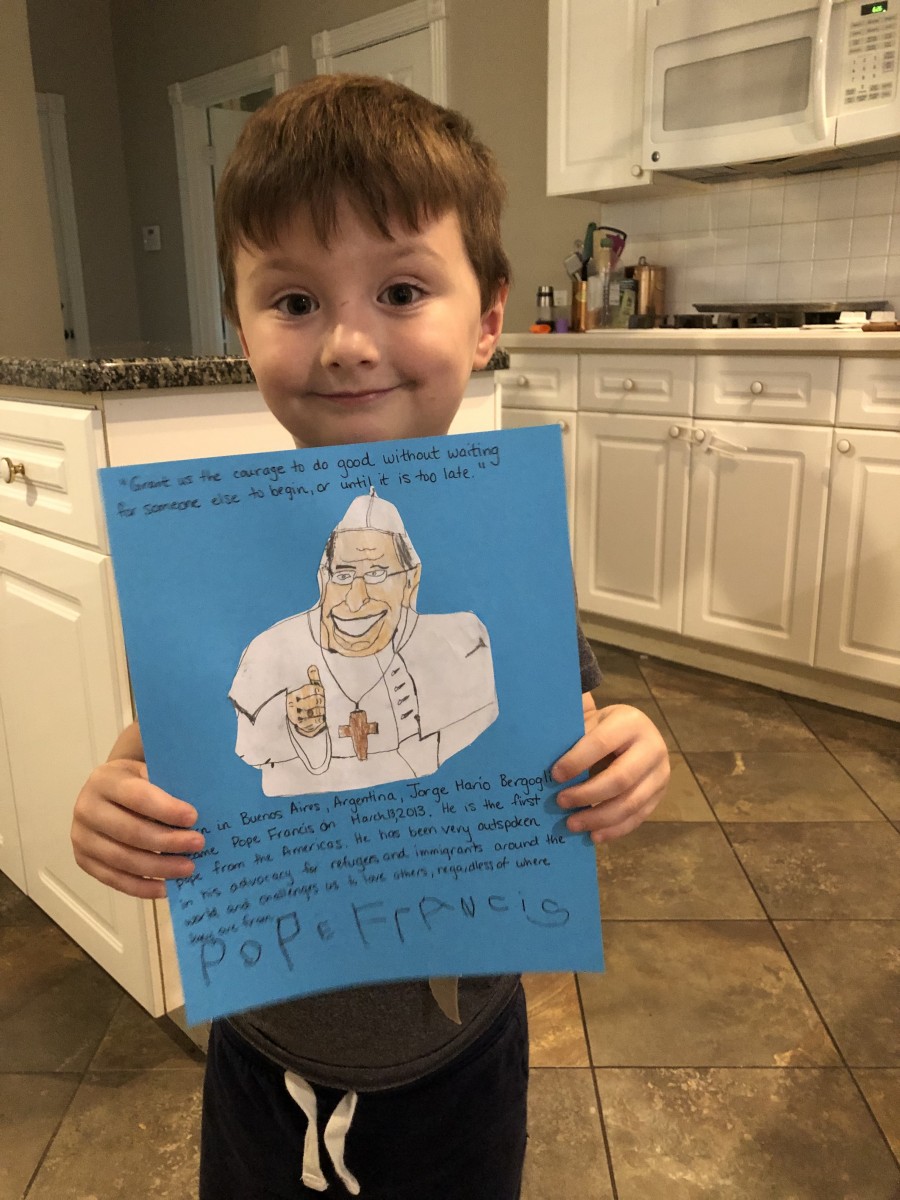 "Grant us the courage to do good without waiting
for someone else to begin, or until it is too late."
in Buenos Aires, Argentina, Jorge Mario Bergogli
Pope Francis on March 13, 2013. He is the first
pope from the Americas. He has been very outspoken
in his advocacy for refugees and immigrants around the
world and challenges us to love others, regardless of where
they are from.
POPE FrANcis